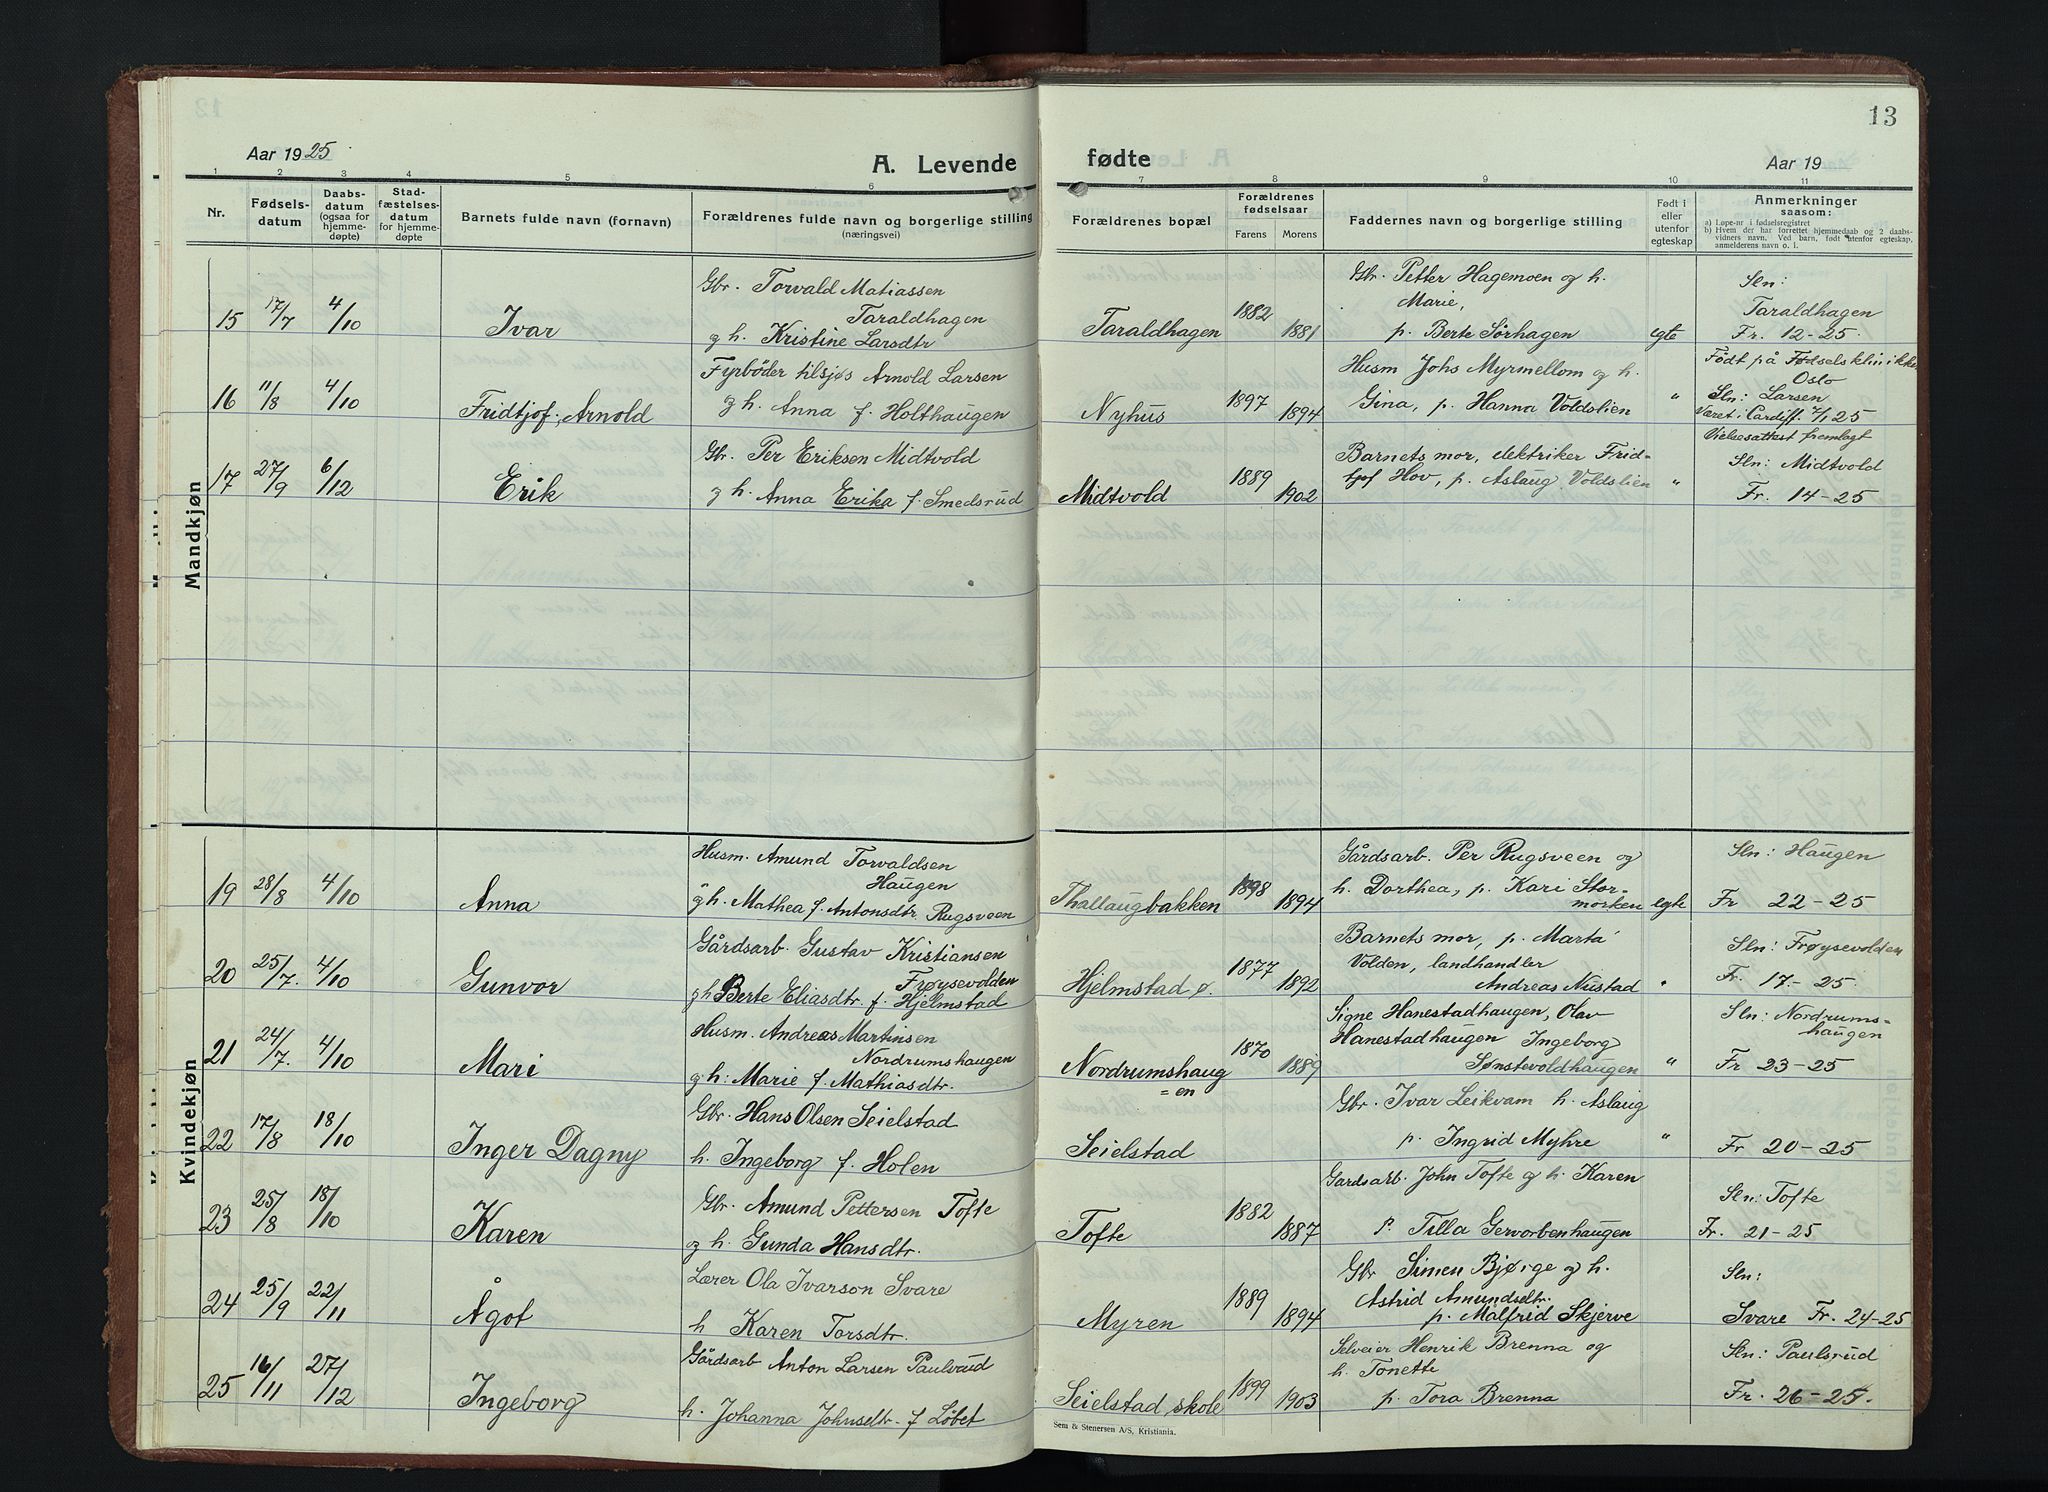 13
Aar 1925
A. Levende fødte
Aar 19
1 2 3 4 5 6 7 8 9 10 11
Nr.
Fødsels-
datum
Daabs-
datum
(ogsaa for
hjemme-
døpte)
Stad-
fæstelses-
datum
for hjemme-
døpte
Barnets fulde navn (fornavn)
Forældrenes fulde navn og borgerlige stilling
(næringsvei)
Forældrenes bopæl
Forældrenes
fødselsaar
Farens Morens
Faddernes navn og borgerlige stilling
Født i
eller
utenfor
egteskap
Anmerkninger
saasom:
a) Løpe-nr i fødselsregistret
b) Hvem der har forrettet hjemmedaab og 2 daabs-
vidners navn. Ved barn, født utenfor egteskap,
anmelderens navn o. l.
Mandkjøn
15 17/7 4/10 Ivar
Gbr. Torvald Matiassen
Taraldhagen
og h. Kristine Larsdtr
Taraldhagen 1882 1881
Gbr. Petter Hagemoen og h.
Marie,
p. Berte Sørhagen egte
Sln:
Taraldhagen
Fr. 12-25
16 11/8 4/10 Fridtjof, Arnold
Fyrbøder tilsjøs Arnold Larsen
og h. Anna f. Holthaugen
Nyhus 1897 1894
Husm Johs Myrmellom og h.
Gina, p. Hanna Voldslien "
Født på Fødselsklinikken
Oslo
Sln: Larsen
Været i Cardiff 7/1 25
Vielsesattest fremlagt
17 27/9 6/12 Erik
Gbr. Per Eriksen Midtvold
og h. Anna Erika f. Smedsrud
Midtvold 1889 1902
Barnets mor, elektriker Frid-
tjof Hov, p. Aslaug Voldslien "
Sln: Midtvold
Fr. 14-25
Kvindekjøn
19 28/8 4/10 Anna
Husm. Amund Torvaldsen
Haugen
og h. Mathea f. Antonsdtr Rugsveen
Thallaugbakken 1898 1894
Gårdsarb. Per Rugsveen og
h. Dorthea, p. Kari Stor-
morken egte
Sln: Haugen
Fr 22-25
20 25/7. 4/10 Gunvor
Gårdsarb. Gustav Kristiansen
Frøysevolden
og h Berte Eliasdtr. f. Hjelmstad
Hjelmstad ø. 1877 1892
Barnets mor, p. Marta
Volden, landhandler
Andreas Nustad "
Sln: Frøysevolden
Fr. 17.-25.
21 24/7. 4/10 Mari
Husm. Andreas Martinsen
Nordrumshaugen
og h: Marie f. Mathiasdtr.
Nordrumshaug
=en 1870 1889
Signe Hanestadhaugen, Olav
Hanestadhaugen Ingeborg
Sønstevoldhaugen "
Sln: Nordrums=
haugen
Fr 23-25
22 17/8 18/10 Inger Dagny
Gbr. Hans Olsen Seielstad
h. Ingeborg f. Holen
Seielstad
Gbr. Ivar Leikvam h. Aslaug
p. Ingrid Myhre "
Fr 20-25
23 25/8 18/10 Karen
Gbr. Amund Pettersen Tofte
og h. Gunda Hansdtr.
Tofte 1882 1887
Gardsarb. John Tofte og h. Karen
p. Tilla Gervorbenhaugen
Sln: Tofte
Fr. 21-25
24 25/9 22/11 Ågot
Lærer Ola Ivarson Svare
h Karen Torsdtr.
Myren 1889 1894
Gbr Simen Bjørge og h.
Astrid Amundsdtr.
p. Målfrid Skjerve
Sln:
Svare Fr. 24-25
25 16/11 27/12 Ingeborg
Gårdsarb Anton Larsen Paulsrud
h. Johanna Johnsdtr. f Løbet
Seielstad skole 1899 1903
Selveier Henrik Brenna og
h. Tonette
p. Tora Brenna
Sln: Paulsrud
Fr. 26-25.
Sem & Stenersen A/S, Kristiania.